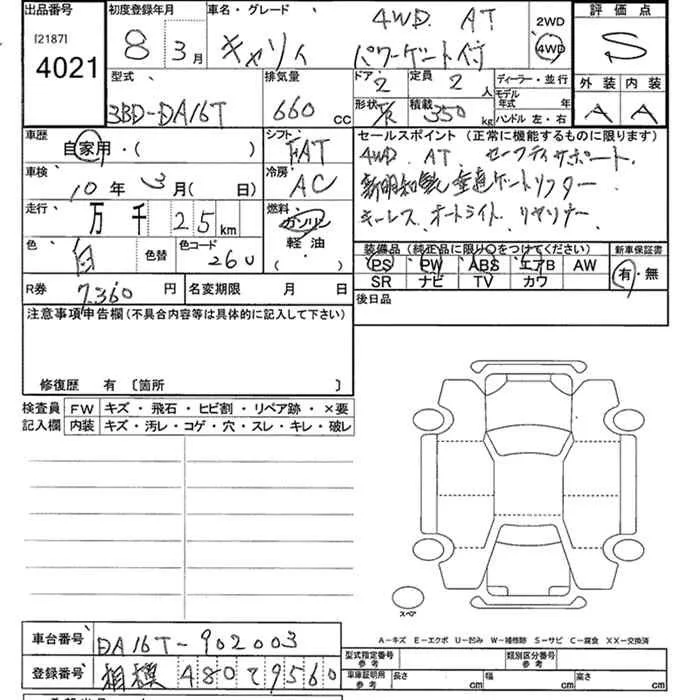 出品番号 初度登録年月 車名・グレード 4WD AT 2WD 評価点
[2187] 4021 8年 3月 キャリィ パワーゲート付 4WD S
型式 排気量 ドア 定員 ディーラー・並行 外装 内装
3BD-DA16T 660 cc 2 2人 モデル年式 年 A A
形状 積載 350 kg ハンドル 左・右
車歴 シフト セールスポイント (正常に機能するものに限ります)
自家用・( ) FAT 4WD. AT. セーフティサポート.
車検 冷房 新明和製 垂直ゲートリフター
10年 3月( 日) AC キーレス オートライト
走行 燃料
万 千 25 km ガソリン
色 色替 色コード 軽油 装備品 (純正品に限り○をつけてください) 新車保証書
白 26U ( ) PS PW ABS エアB AW 有・無
SR ナビ TV カワ
R券 7,360 円 名変期限 月 日 後日品
注意事項申告欄(不具合内容等は具体的に記入して下さい)
修復歴 有 〔箇所 〕
検査員 FW キズ・飛石・ヒビ割・リペア跡・×要
記入欄 内装 キズ・汚レ・コゲ・穴・スレ・キレ・破レ
スペア
A－キズ E－エクボ U－凹み W－補修跡 S－サビ C－腐食 XX－交換済
車台番号 DA16T-902003 型式指定番号 参考 類別区分番号 参考
登録番号 相模 480 7 9560 車庫証明用 参考 長さ cm 幅 cm 高さ cm